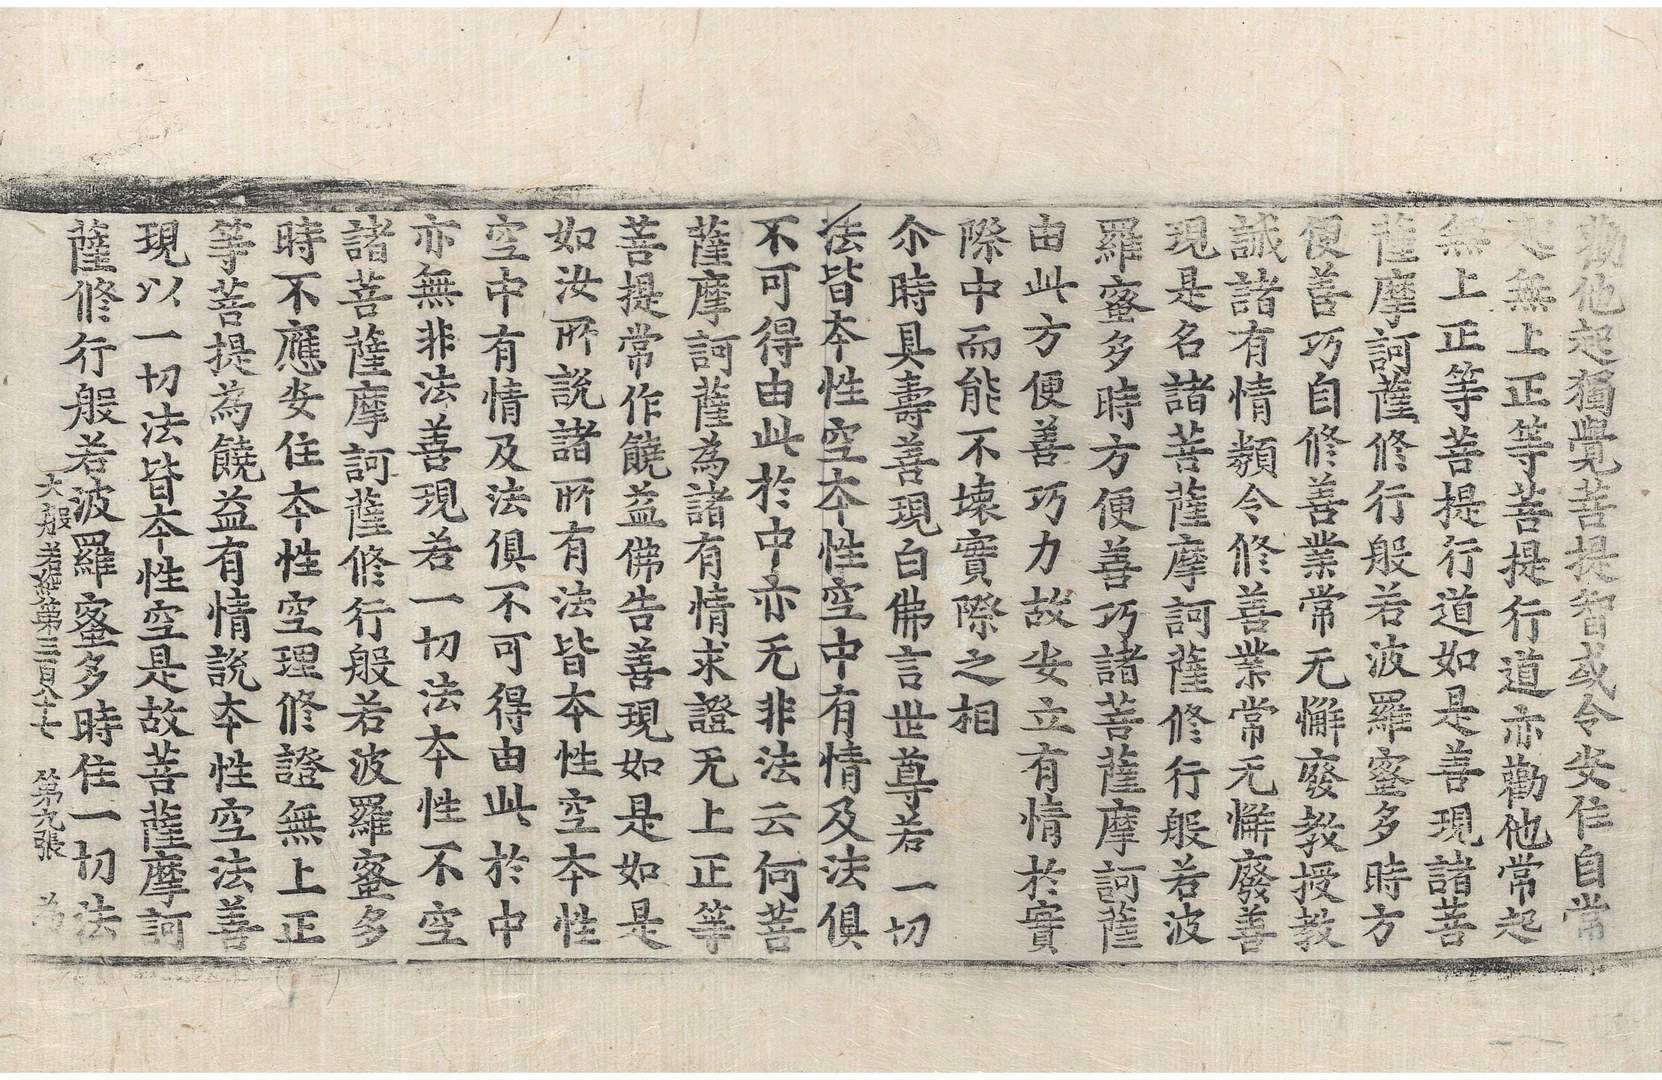 勸他起獨覺菩提智或令安住自常
起無上正等菩提行道亦勸他常起
無上正等菩提行道如是善現諸菩
薩摩訶薩修行般若波羅蜜多時方
便善巧自修善業常无懈廢教授教
誡諸有情類令修善業常无懈廢善
現是名諸菩薩摩訶薩修行般若波
羅蜜多時方便善巧諸菩薩摩訶薩
由此方便善巧力故安立有情於實
際中而能不壞實際之相
尒時具壽善現白佛言世尊若一切
法皆本性空本性空中有情及法俱
不可得由此於中亦无非法云何菩
薩摩訶薩為諸有情求證无上正等
菩提常作饒益佛告善現如是如是
如汝所說諸所有法皆本性空本性
空中有情及法俱不可得由此於中
亦無非法善現若一切法本性不空
諸菩薩摩訶薩修行般若波羅蜜多
時不應安住本性空理修證無上正
等菩提為饒益有情說本性空法善
現以一切法皆本性空是故菩薩摩訶
薩修行般若波羅蜜多時住一切法
大般若經第三百八十七 第九張 為